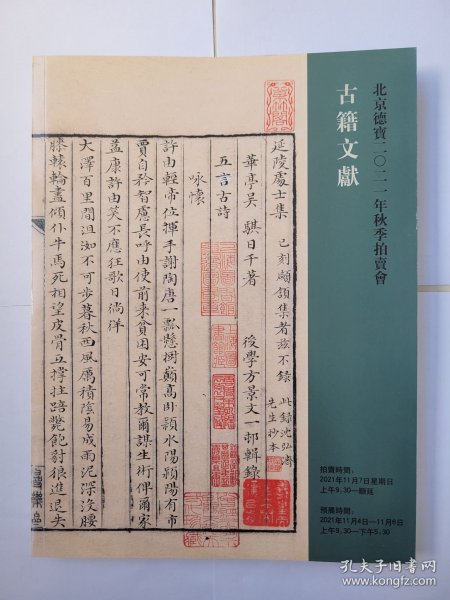 北京德寶二〇二一年秋季拍賣會
古籍文獻
拍賣時間：
2021年11月7日星期日
上午9:30—順延
預展時間：
2021年11月4日—11月6日
上午9:30—下午5:30
延陵處士集 已刻頗頷集者茲不錄 此錄沈弘濟先生抄本
華亭吳騏日千著 後學方景文一邨輯錄
五言古詩
咏懷
許由輕帝位揮手謝陶唐一瓢懸樹巔高卧潁水陽潁陽有市
賈自矜智慮長呼由使前來貧困安可常教爾謀生術俾爾家
益康許由笑不應狂歌日徜徉
大澤百里間沮洳不可步暮秋西風厲積陰易成雨泥深沒腰
膝轅輪盡傾仆牛馬死相望皮骨互撐拄踣斃飽豺狼進退失
孔夫子旧书网